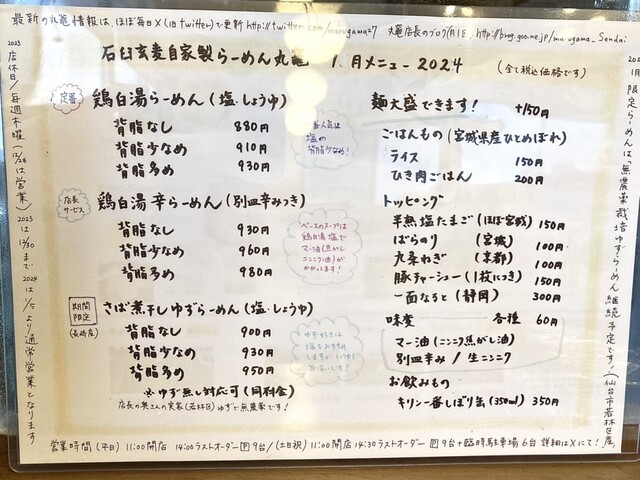 最新の丸竈情報は、ほぼ毎日X(旧twitter)で更新 http://twitter.com/marugama27 丸竈店長のブログ
石臼玄麦自家製らーめん丸竈 1月メニュー 2024
(全て税込価格です)
定番
鶏白湯らーめん(塩・しょうゆ)
背脂なし 880円
背脂少なめ 910円
背脂多め 930円
一番人気は塩の背脂少なめ!
店長サービス
鶏白湯 辛らーめん(別皿辛みつき)
背脂なし 930円
背脂少なめ 960円
背脂多め 980円
ベースのスープは
鶏白湯 塩で
マー油(焦がし
ニンニク油)が
かかってます!
期間限定
(長崎産)
さば煮干しゆずらーめん(塩・しょうゆ)
背脂なし 900円
背脂少なめ 930円
背脂多め 950円
ゆず好きには
塩をおすすめ
※ゆず無し対応可(同料金)
店長の奥さんの実家(若林区)ゆずで無農薬です!
麺大盛できます! +150円
ごはんもの(宮城県産ひとめぼれ)
ライス 150円
ひき肉ごはん 200円
トッピング
半熟塩たまご(ほぼ宮城) 150円
ばらのり (宮城) 100円
九条ねぎ (京都) 100円
豚チャーシュー(1枚につき) 150円
一面なると(静岡) 300円
味変 各種 60円
マー油(ニンニク焦がし油)
別皿辛み / 生ニンニク
お飲みもの
キリン一番しぼり缶(350ml) 350円
営業時間(平日) 11:00開店 14:00ラストオーダー P9台/(土日祝) 11:00開店 14:30ラストオーダー P9台+臨時駐車場6台 詳細はXにて!
2023店休日/毎週木曜(12/28は営業) 2023は12/30まで 2024は1/5より通常営業となります
1月限定らーめんは、無農薬栽培ゆずらーめん継続予定です!(仙台市若林区産)